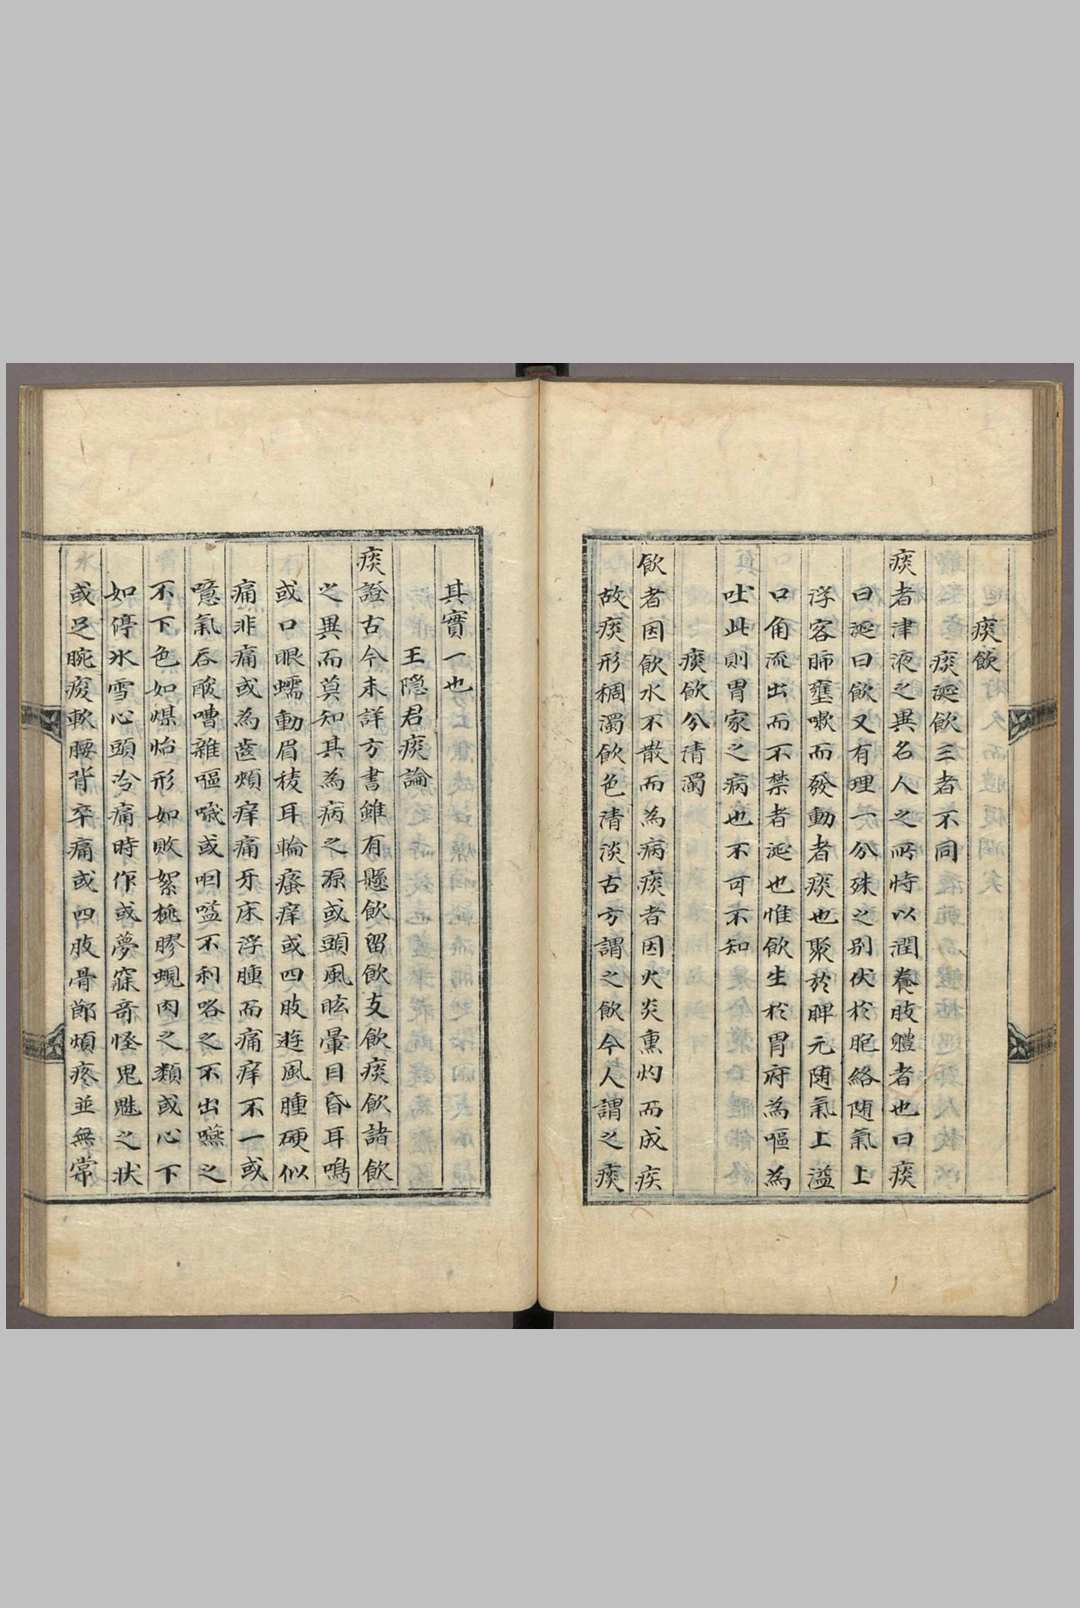 痰飲
痰涎飲三者不同
痰者津液之異名人之所恃以潤養肢體者也曰痰
曰涎曰飲又有理一分殊之別伏於胞絡随氣上
浮客肺壅嗽而發動者痰也聚於脾元随氣上溢
口角流出而不禁者涎也惟飲生於胃府為嘔為
吐此則胃家之病也不可不知
痰飲分清濁
飲者因飲水不散而為病痰者因火炎熏灼而成疾
故痰形稠濁飲色清淡古方謂之飲今人謂之痰
其實一也
王隐君痰論
痰證古今未詳方書雖有懸飲留飲支飲痰飲諸飲
之異而莫知其為病之源或頭風眩暈目昏耳鳴
或口眼蠕動眉稜耳輪瘙痒或四肢遊風腫硬似
痛非痛或為齒頰痒痛牙床浮腫而痛痒不一或
噫氣吞酸嘈雜嘔噦或咽嗌不利咯之不出嚥之
不下色如煤炲形如敗絮桃膠蜆肉之類或心下
如停氷雪心頭冷痛時作或夢寐奇怪鬼魅之状
或足腕痠軟腰背卒痛或四肢骨節煩疼並無常